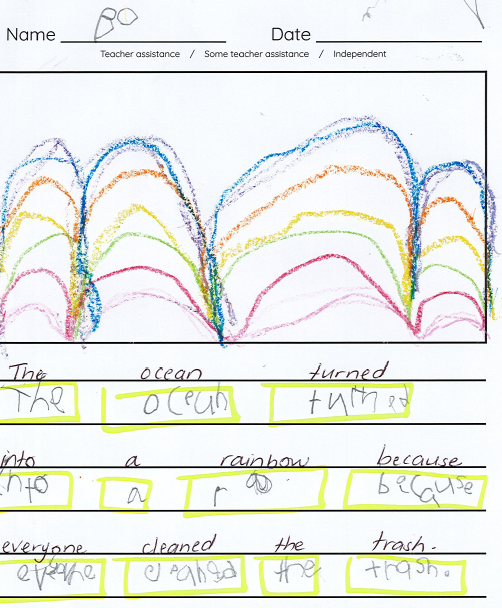 Name Bo Date
Teacher assistance / Some teacher assistance / Independent
The ocean turned
The ocean turned
into a rainbow because
into a r because
everyone cleaned the trash.
the trash.